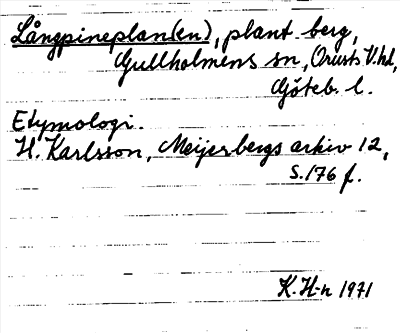 Långpineplan(en), plant. berg,
Gullholmens sn, Orusts V. hd,
Göteb. l.
Etymologi.
H. Karlsson, Meijerbergs arkiv 12,
s. 176 f.
K. H-n 1971